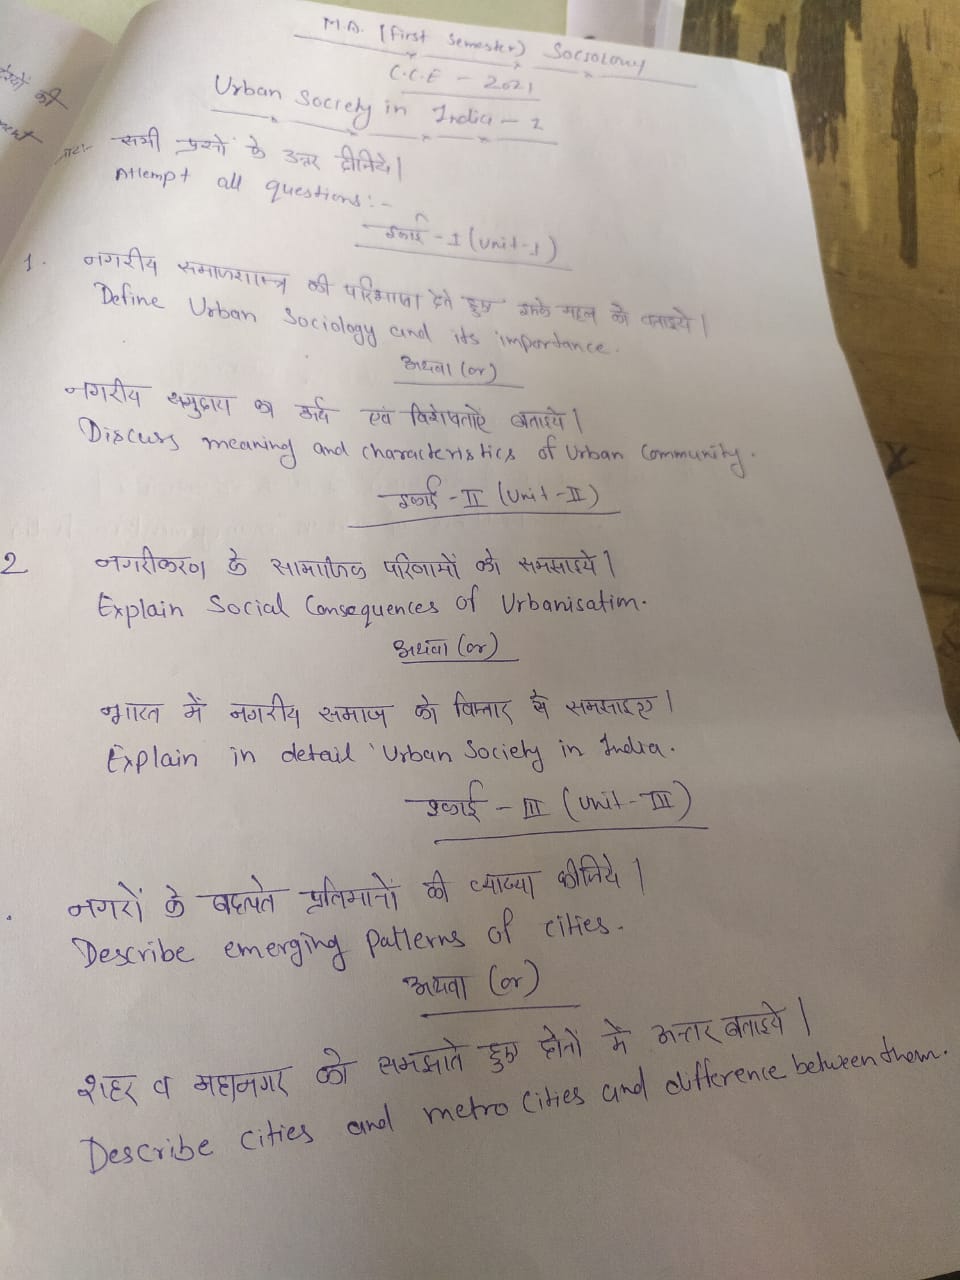 देशों की
ment
M.A. (First Semester) Sociology
C.C.E - 2021
Urban Society in India - I
नोट:- सभी प्रश्नों के उत्तर दीजिये।
Attempt all questions:-
इकाई - I (Unit-I)
1. नगरीय समाजशास्त्र की परिभाषा देते हुए इसके महत्व को बताइये।
Define Urban Sociology and its importance.
अथवा (or)
नगरीय समुदाय का अर्थ एवं विशेषताऐं बताइये।
Discuss meaning and characteristics of Urban Community.
इकाई - II (Unit-II)
2 नगरीकरण के सामाजिक परिणामों को समझाइये।
Explain Social Consequences of Urbanisation.
अथवा (or)
भारत में नगरीय समाज को विस्तार से समझाइए।
Explain in detail 'Urban Society in India.
इकाई - III (Unit-III)
नगरों के बदलते प्रतिमानों की व्याख्या कीजिये।
Describe emerging Patterns of cities.
अथवा (or)
शहर व महानगर को समझाते हुए दोनों में अन्तर बताइये।
Describe cities and metro cities and difference between them.